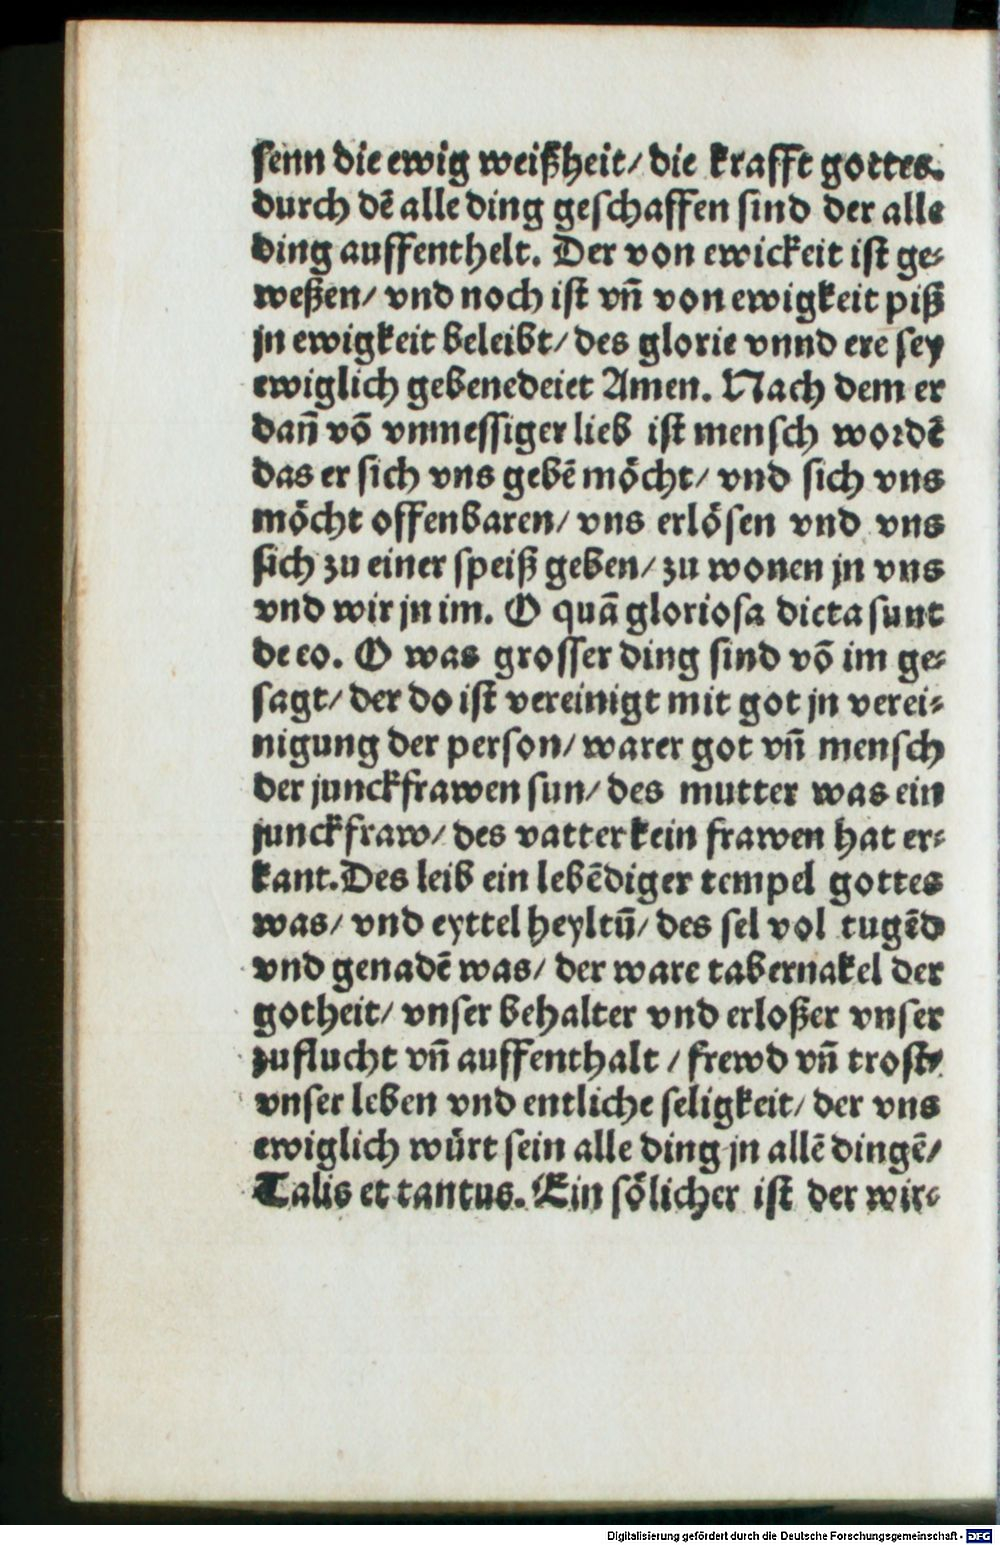 senn die ewig weißheit/ die krafft gottes.
durch dē alle ding geschaffen sind der alle
ding auffenthelt. Der von ewickeit ist ge⸗
weßen/ vnd noch ist vn̄ von ewigkeit piß
jn ewigkeit beleibt/ des glorie vnnd ere sey
ewiglich gebenedeiet Amen. Nach dem er
dan̄ vō vnmessiger lieb ist mensch wordē
das er sich vns gebē möcht/ vnd sich vns
möcht offenbaren/ vns erlösen vnd vns
sich zu einer speiß geben/ zu wonen jn vns
vnd wir jn im. O quā gloriosa dicta sunt
de eo. O was grosser ding sind vō im ge⸗
sagt/ der do ist vereinigt mit got jn verei⸗
nigung der person/ warer got vn̄ mensch
der junckfrawen sun/ des mutter was ein
junckfraw/ des vatter kein frawen hat er⸗
kant. Des leib ein lebēdiger tempel gottes
was/ vnd eyttel heyltū/ des sel vol tugēd
vnd genadē was/ der ware tabernakel der
gotheit/ vnser behalter vnd erloßer vnser
zuflucht vn̄ auffenthalt / frewd vn̄ trost/
vnser leben vnd entliche seligkeit/ der vns
ewiglich würt sein alle ding jn allē dingē/
Talis et tantus. Ein sölicher ist der wir⸗
Digitalisierung gefördert durch die Deutsche Forschungsgemeinschaft - DFG